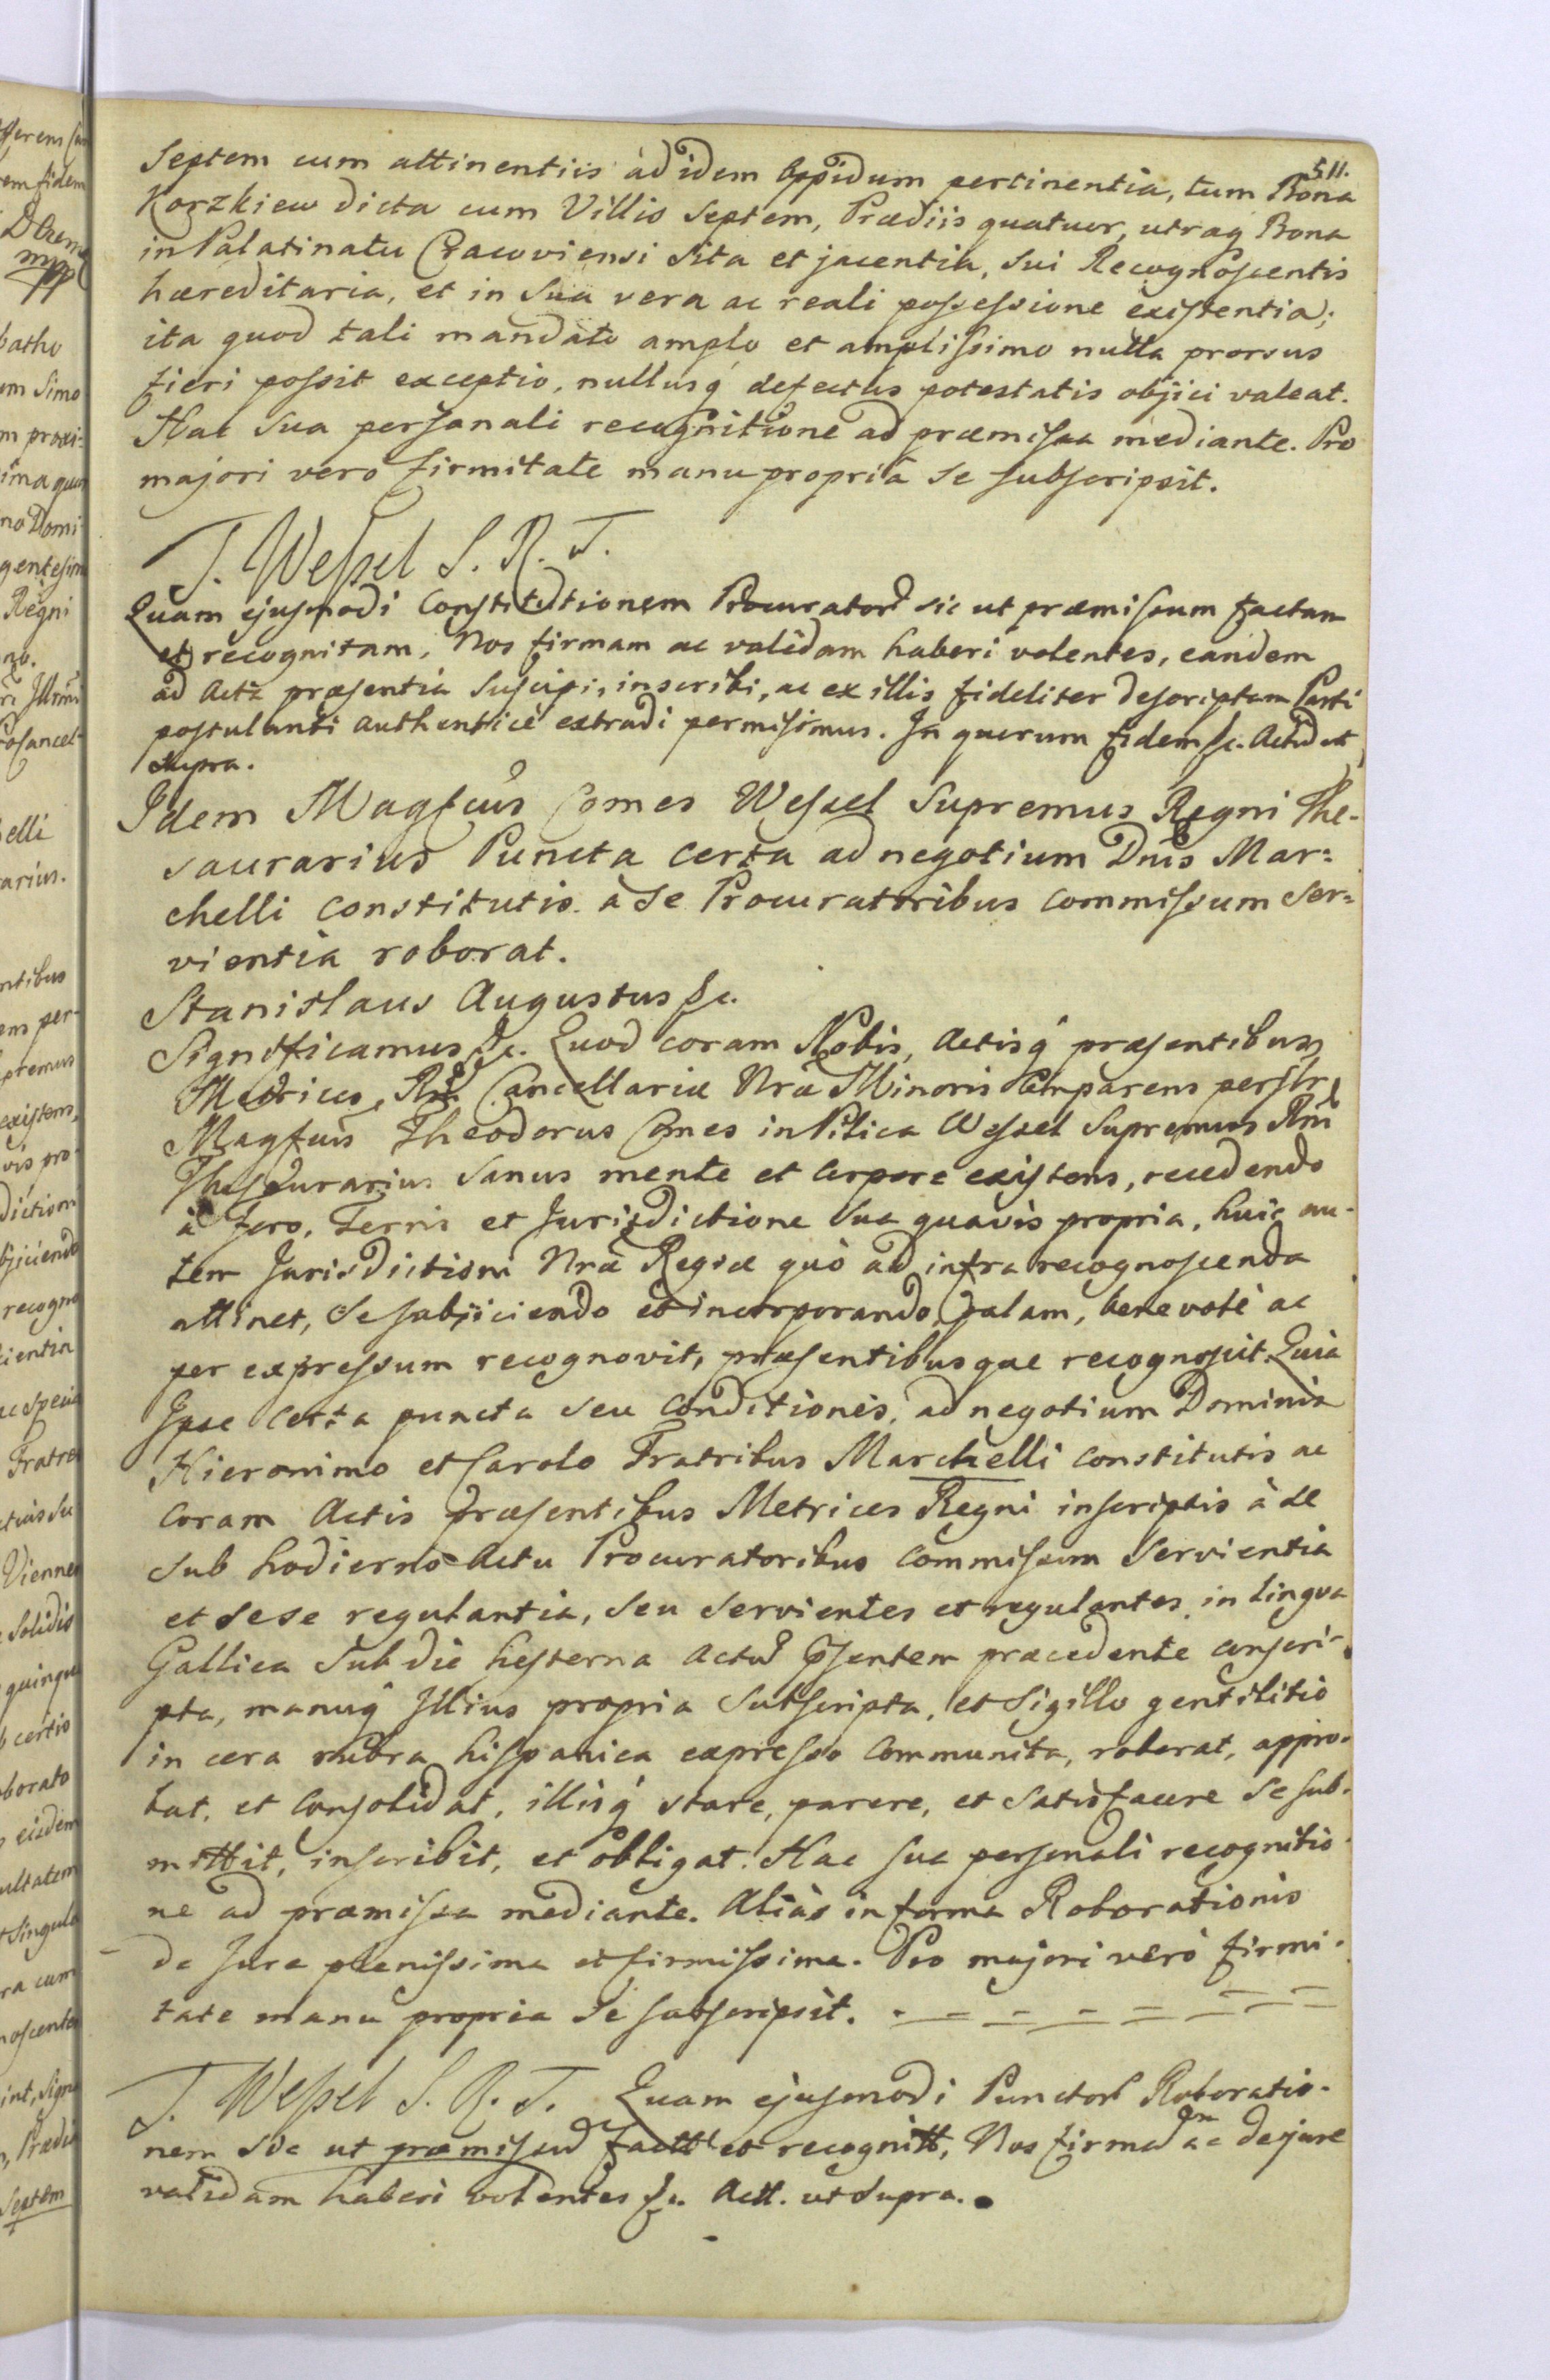 511.
Septem cum attinentiis ad idem Oppidum pertinentia, tum Bona
Korzkiew dicta cum Villis Septem, Prædiis quatuor, utraq Bona
in Palatinatu Cracoviensi Sita et jacentia, sui Recognoscentis
hæreditaria, et in Sua vera ac reali possessione existentia;
ita quod tali mandato amplo et amplissimo nulla prorsus
fieri possit exceptio, nullusq defectus potestatis objici valeat.
Hac Sua personali recognitione ad præmissa mediante. Pro
majori vero firmitate manu propria se subscripsit.
T. Wessel S. R. T.
Quam ejusmodi Constitutionem Procurator sic ut præmissum factam
et recognitam, Nos firmam ac validam haberi volentes, eandem
ad Acta præsentia Suscipi, inscribi, ac ex illis fideliter descriptam Parti
postulanti authenticè extradi permisimus. In quorum fidem &c. Actu ut
supra.
Idem Magfcus Comes Wessel Supremus Regni The-
saurarius Puncta certa ad negotium Dnis Mar=
chelli constitutis à Se Procuratoribus commissum Ser=
vientia roborat.
Stanislaus Augustus &c.
Significamus &c. Quod coram Nobis, Actisq præsentibus
Metrices Rni Cancellariæ Nræ Minoris Comparens perslr
Magfcus Theodorus Comes in Pilica Wessel Supremus Rni
Thesaurarius Sanus mente et Corpore existens, recedendo
à foro, Terris et Jurisdictione Sua quavis propria, huic au-
tem Jurisdictioni Nræ Regiæ quò ad infra recognoscenda
attinet, Se subjiciendo et incorporando, palam, benevolè ac
per expressum recognovit, præsentibusque recognoscit. Quia
Ipse certa puncta seu Conditiones, ad negotium Dominis
Hieronimo et Carolo Fratribus Marchelli constitutis ac
coram Actis præsentibus Metrices Regni inscriptis à Se
sub hodierno Actu Procuratoribus commissum Servientia
et sese regulantia, seu Servientes et regulantes, in lingva
Gallica Sub die hesterna Actum psentem præcedente conscri-
pta, manuq Illius propria Subscripta, et Sigillo gentilitio
in cera rubra hispanica expresso communita, roborat, appro-
bat, et consolidat, illisq stare, parere, et Satisfacere Se sub-
mittit, inscribit, et obligat. Hac sua personali recognitio-
ne ad præmissa mediante. Aliàs in forma Roborationis
de Jure plenissima et firmissima. Pro majori verò firmi-
tate manu propria Se subscripsit.
T. Wessel S. R. T. Quam ejusmodi Punctor Roboratio-
nem sic ut præmissum factt et recognitt, Nos firmam ac de jure
validam haberi volentes &c. Actt. ut supra.